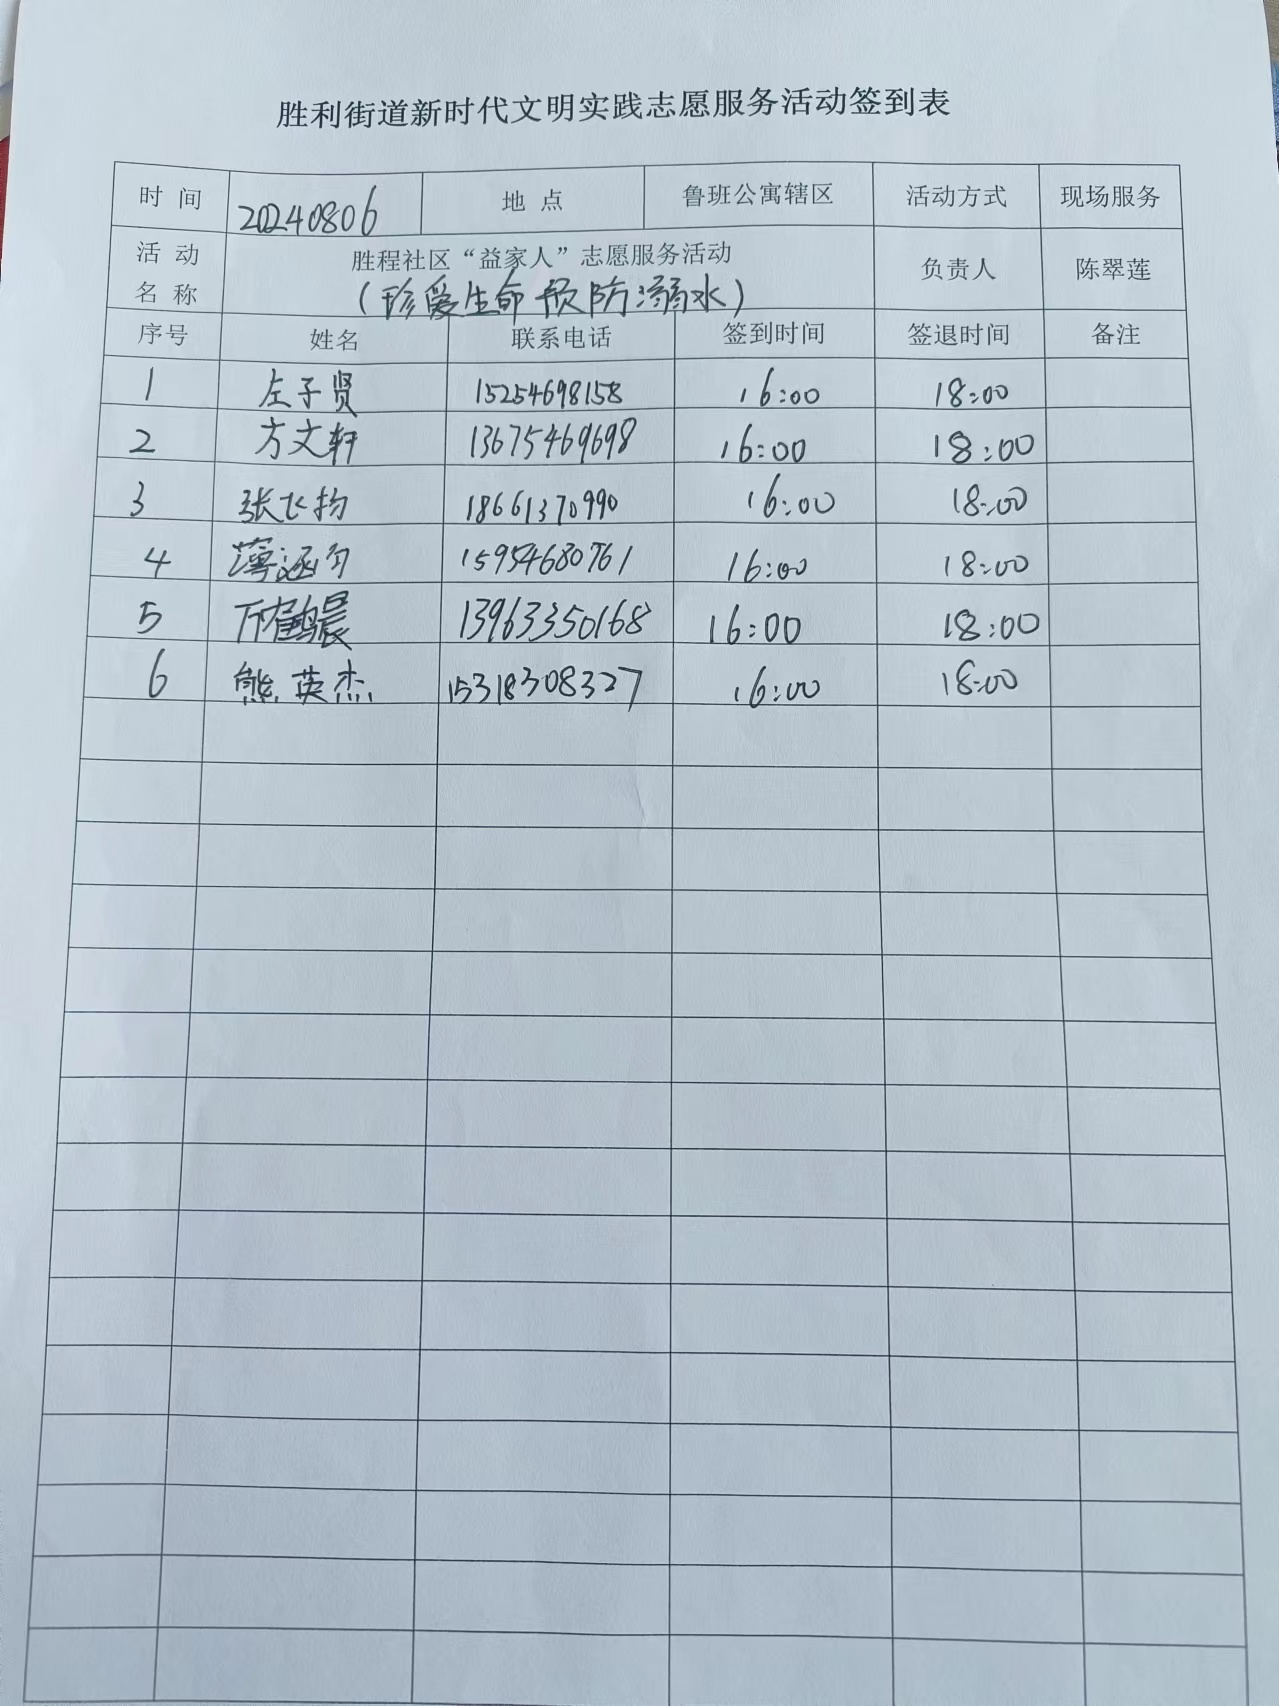 胜利街道新时代文明实践志愿服务活动签到表
时 间 20240806 地 点 鲁班公寓辖区 活动方式 现场服务
活 动 名 称 胜程社区“益家人”志愿服务活动 负责人 陈翠莲
(珍爱生命 预防溺水)
序号 姓名 联系电话 签到时间 签退时间 备注
1 左子贤 15254698158 16:00 18:00
2 方文轩 13675469698 16:00 18:00
3 张飞扬 18661370990 16:00 18:00
4 薄涵匀 15954680761 16:00 18:00
5 13963350168 16:00 18:00
6 熊英杰 15318308327 16:00 18:00